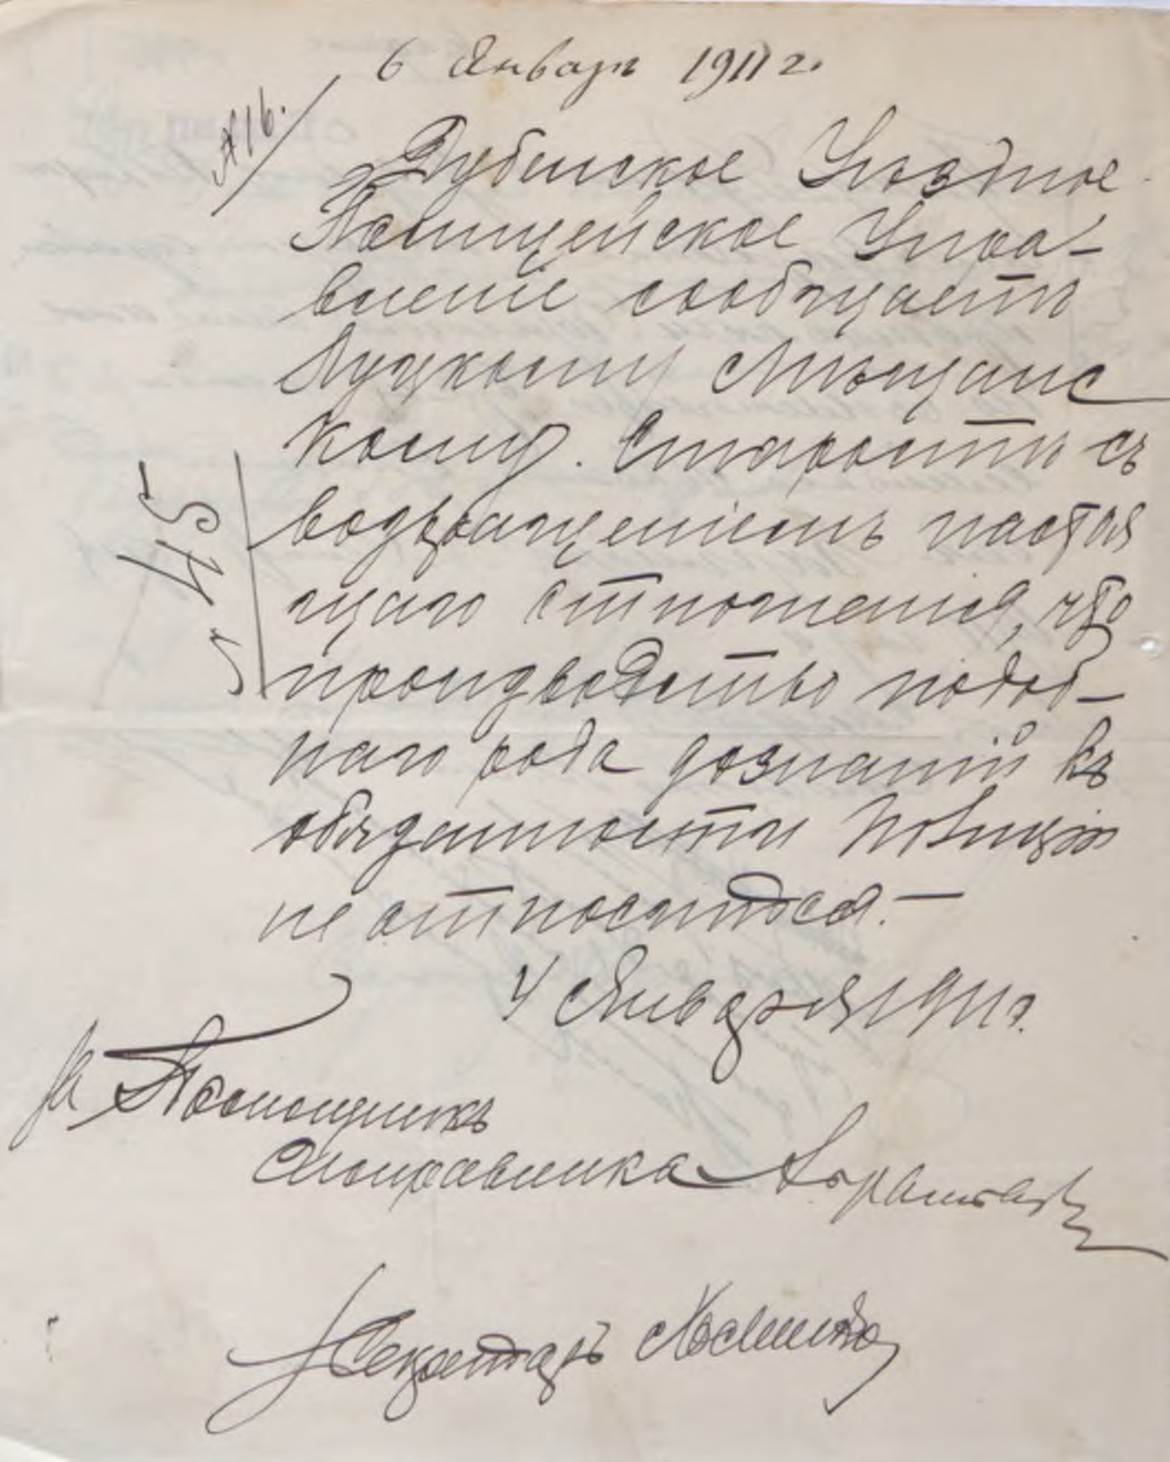 6 Январь 1911 г.
№ 16.
Дубенское Уѣздное
Полицейское Упра-
вленіе сообщаетъ
Луцкому Мѣщанс
кому Старостѣ съ
возвращеніемъ настоя
щаго отношенія, что
45
производство подоб-
наго рода дознаній къ
обязанности Полиціи
не относится.-
4 Января 1911 г.
За Помощникъ
Исправника
Секретарь